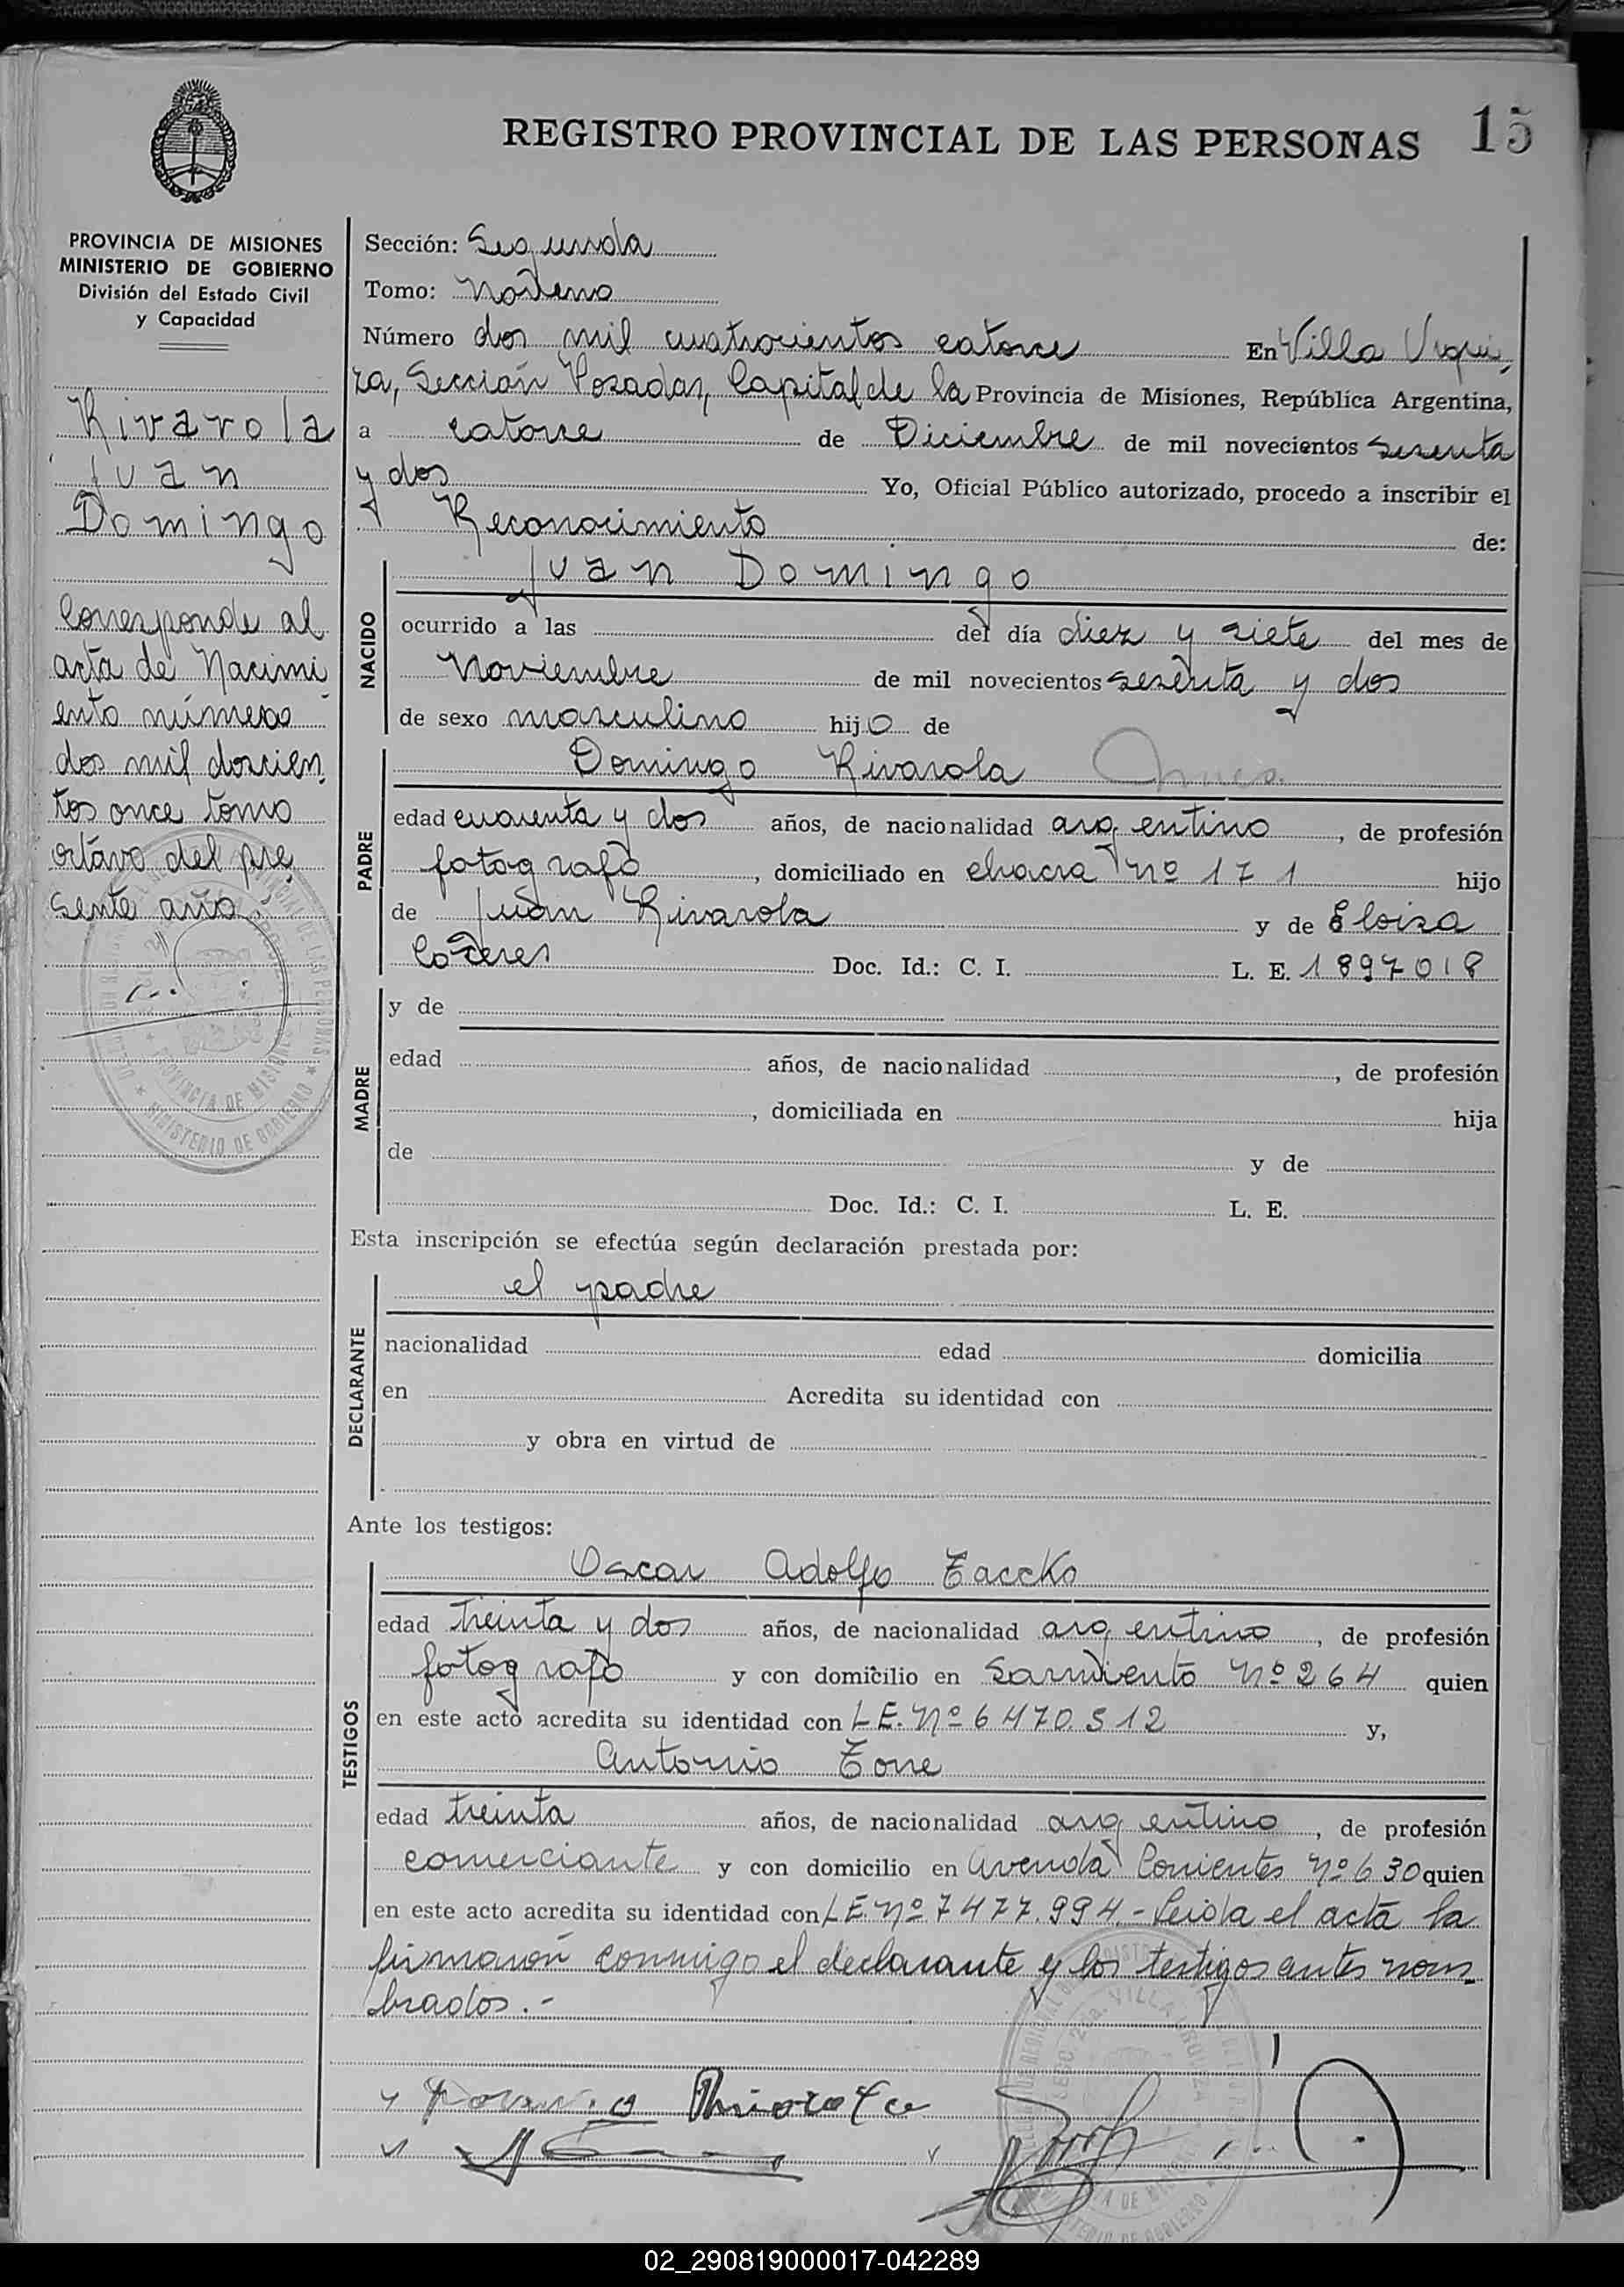 REGISTRO PROVINCIAL DE LAS PERSONAS 15
PROVINCIA DE MISIONES
MINISTERIO DE GOBIERNO
División del Estado Civil
y Capacidad
Rivarola
Juan
Domingo
Corresponde al
acta de Nacimi
ento número
dos mil doscien
tos once tomo
octavo del pre
sente año
Sección: Segunda
Tomo: Noveno
Número dos mil cuatrocientos catorce En Villa Urqui
za, Sección Posadas, Capital de la Provincia de Misiones, República Argentina,
a catorce de Diciembre de mil novecientos sesenta
y dos Yo, Oficial Público autorizado, procedo a inscribir el
Reconocimiento de:
NACIDO
Juan Domingo
ocurrido a las del día diez y siete del mes de
Noviembre de mil novecientos sesenta y dos
de sexo masculino hijo de
PADRE
Domingo Rivarola
edad cuarenta y dos años, de nacionalidad argentino, de profesión
fotografo, domiciliado en chacra nº 171 hijo
de Juan Rivarola y de Eloiza
Doc. Id.: C. I. L. E. 1897018
MADRE
y de
edad años, de nacionalidad , de profesión
, domiciliada en hija
de y de
Doc. Id.: C. I. L. E.
Esta inscripción se efectúa según declaración prestada por:
DECLARANTE
el padre
nacionalidad edad domicilia
en Acredita su identidad con
y obra en virtud de
Ante los testigos:
TESTIGOS
Oscar Adolfo
edad treinta y dos años, de nacionalidad argentino, de profesión
fotografo y con domicilio en Sarmiento nº 264 quien
en este acto acredita su identidad con L.E. nº 6470.512 y,
Antonio
edad treinta años, de nacionalidad argentino, de profesión
comerciante y con domicilio en avenida Corrientes nº 630 quien
en este acto acredita su identidad con L.E. nº 7477.994.- Leida el acta la
firmaron conmigo el declarante y los testigos antes nom
brados.-
02_290819000017-042289